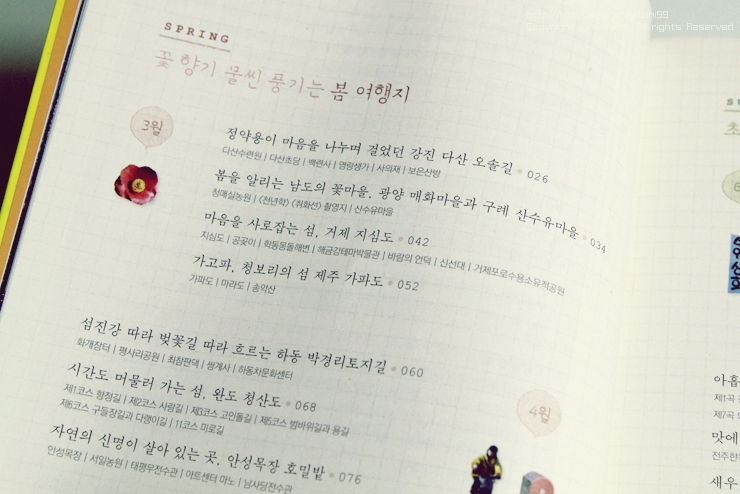 SPRING
꽃 향기 물씬 풍기는 봄 여행지
3월
정약용이 마음을 나누며 걸었던 강진 다산 오솔길 • 026
다산수련원 | 다산초당 | 백련사 | 영랑생가 | 사의재 | 보은산방
봄을 알리는 남도의 꽃마을, 광양 매화마을과 구례 산수유마을 • 034
청매실농원 | 〈천년학〉 〈취화선〉 촬영지 | 산수유마을
마음을 사로잡는 섬, 거제 지심도 • 042
지심도 | 공곶이 | 학동몽돌해변 | 해금강테마박물관 | 바람의 언덕 | 신선대 | 거제포로수용소유적공원
가고파, 청보리의 섬 제주 가파도 • 052
가파도 | 마라도 | 송악산
섬진강 따라 벚꽃길 따라 흐르는 하동 박경리토지길 • 060
화개장터 | 평사리공원 | 최참판댁 | 쌍계사 | 하동차문화센터
4월
시간도 머물러 가는 섬, 완도 청산도 • 068
제1코스 항정길 | 제2코스 사랑길 | 제3코스 고인돌길 | 제5코스 범바위길과 용길
제6코스 구들장길과 다랭이길 | 11코스 미로길
자연의 신명이 살아 있는 곳, 안성목장 호밀밭 • 076
안성목장 | 서일농원 | 태평무전수관 | 아트센터 마노 | 남사당전수관
아홉
제1곡
제7곡
맛에
전주한
새우
rights Reserved